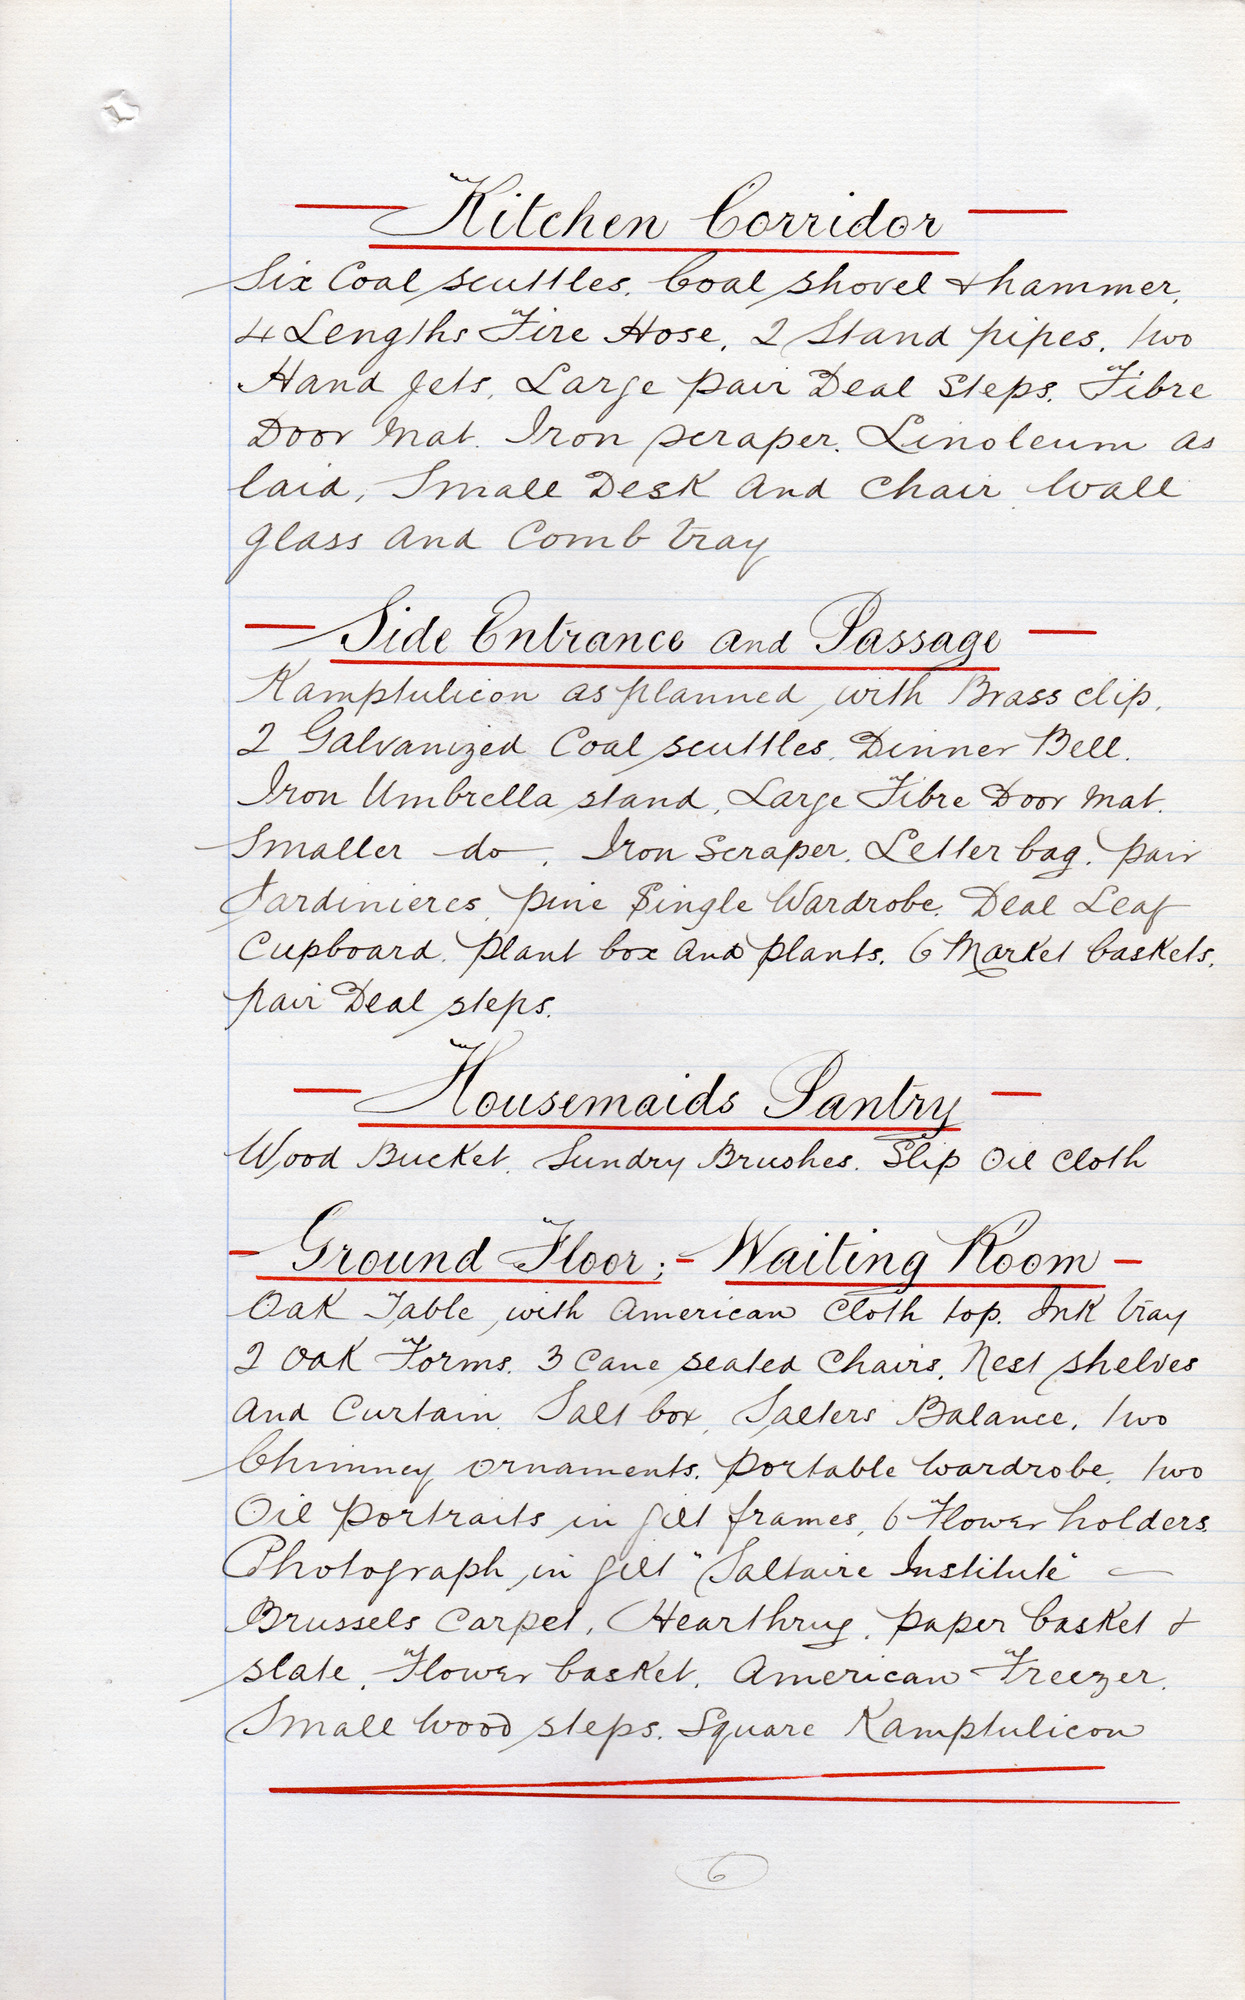 Kitchen Corridor
Six Coal scuttles. Coal shovel & hammer,
4 Lengths Fire Hose, 2 Stand pipes, two
Hand Jets, Large pair Deal Steps. Fibre
Door Mat. Iron scraper. Linoleum as
laid, Small Desk and Chair Wall
glass and Comb tray
Side Entrance and Passage
Kamptulicon as planned, with Brass clip.
2 Galvanized Coal scuttles. Dinner Bell.
Iron Umbrella stand, Large Fibre Door Mat.
Smaller do, Iron Scraper. Letter bag. pair
Jardinieres, pine Single Wardrobe. Deal Leaf
Cupboard. plant box and plants. 6 Market baskets.
pair Deal steps.
Housemaids Pantry
Wood Bucket. Sundry Brushes. Slip Oil Cloth
Ground Floor;- Waiting Room
Oak Table, with American Cloth top. Ink tray
2 Oak Forms. 3 Cane seated Chairs, Nest shelves
and Curtain Salt box, Salters Balance, two
Chimney ornaments. portable wardrobe, two
Oil portraits in gilt frames, 6 Flower holders.
Photograph, in gilt "Saltaire Institute"
Brussels Carpet, Hearthrug, paper basket &
slate, Flower basket, American Freezer.
Small wood steps. Square Kamptulicon
6